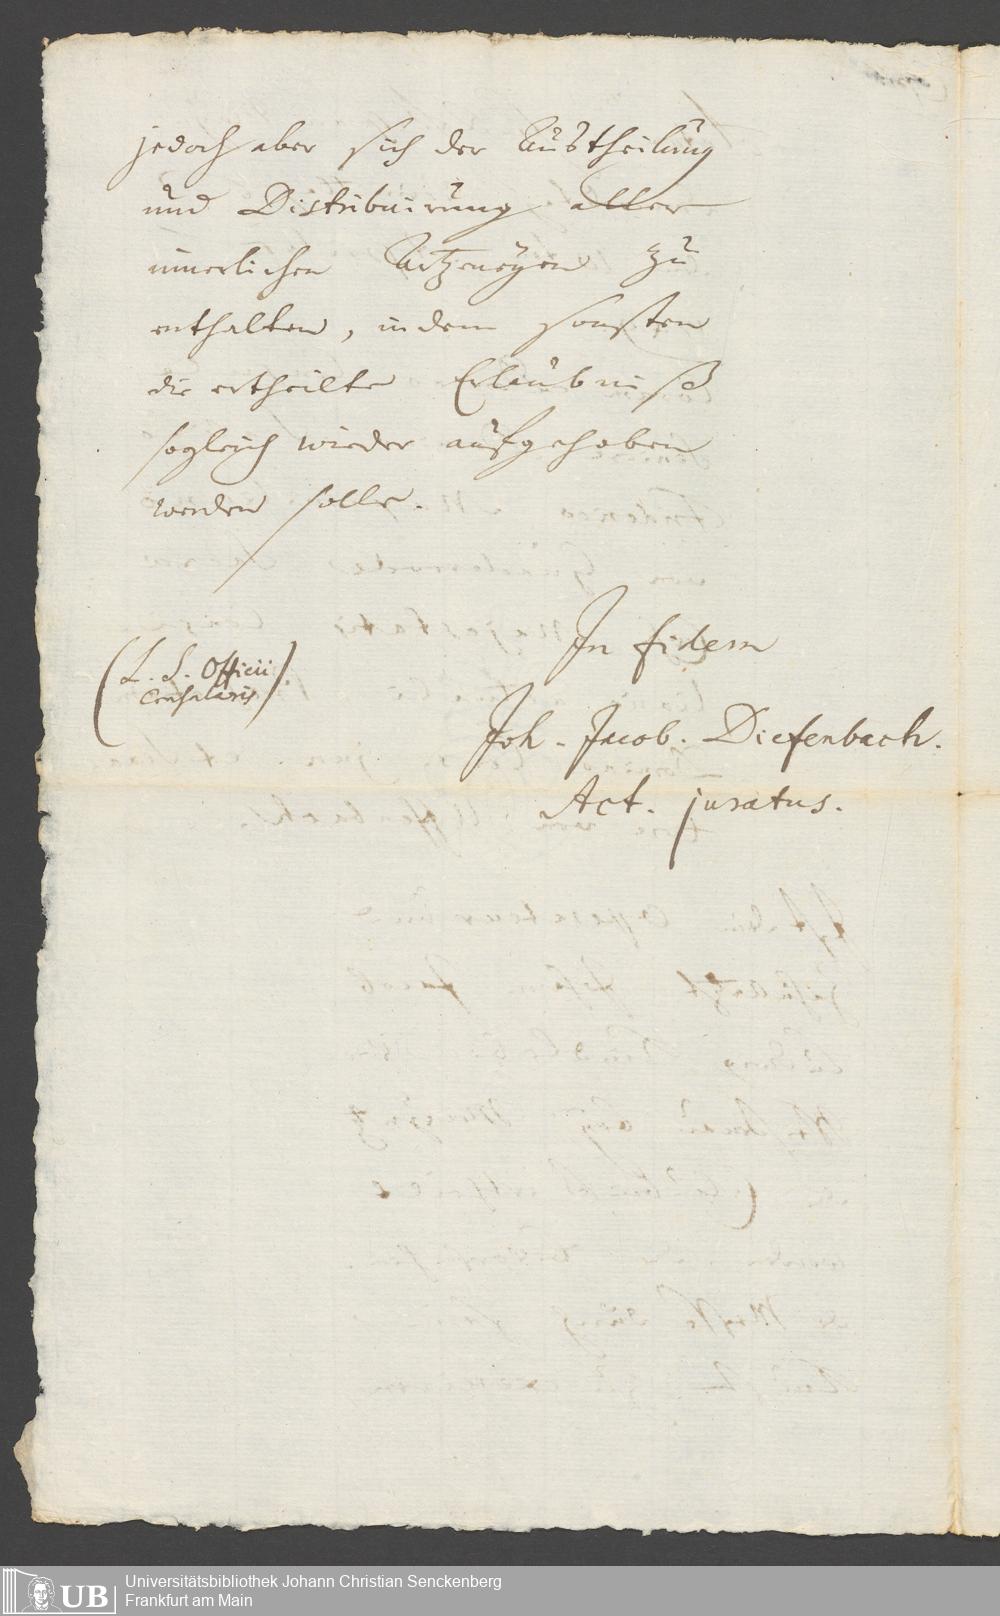 jedoch aber sich der Austheilung
und Distribuirung aller
innerlichen Artzeneyen zu
enthalten, indem sonsten
die ertheilte Erlaubniß
sogleich wieder aufgehoben
werden solle.
In fidem
(L. S. Officii
Consularis)
Joh. Jacob. Diefenbach.
Act. juratus.
UB
Universitätsbibliothek Johann Christian Senckenberg
Frankfurt am Main